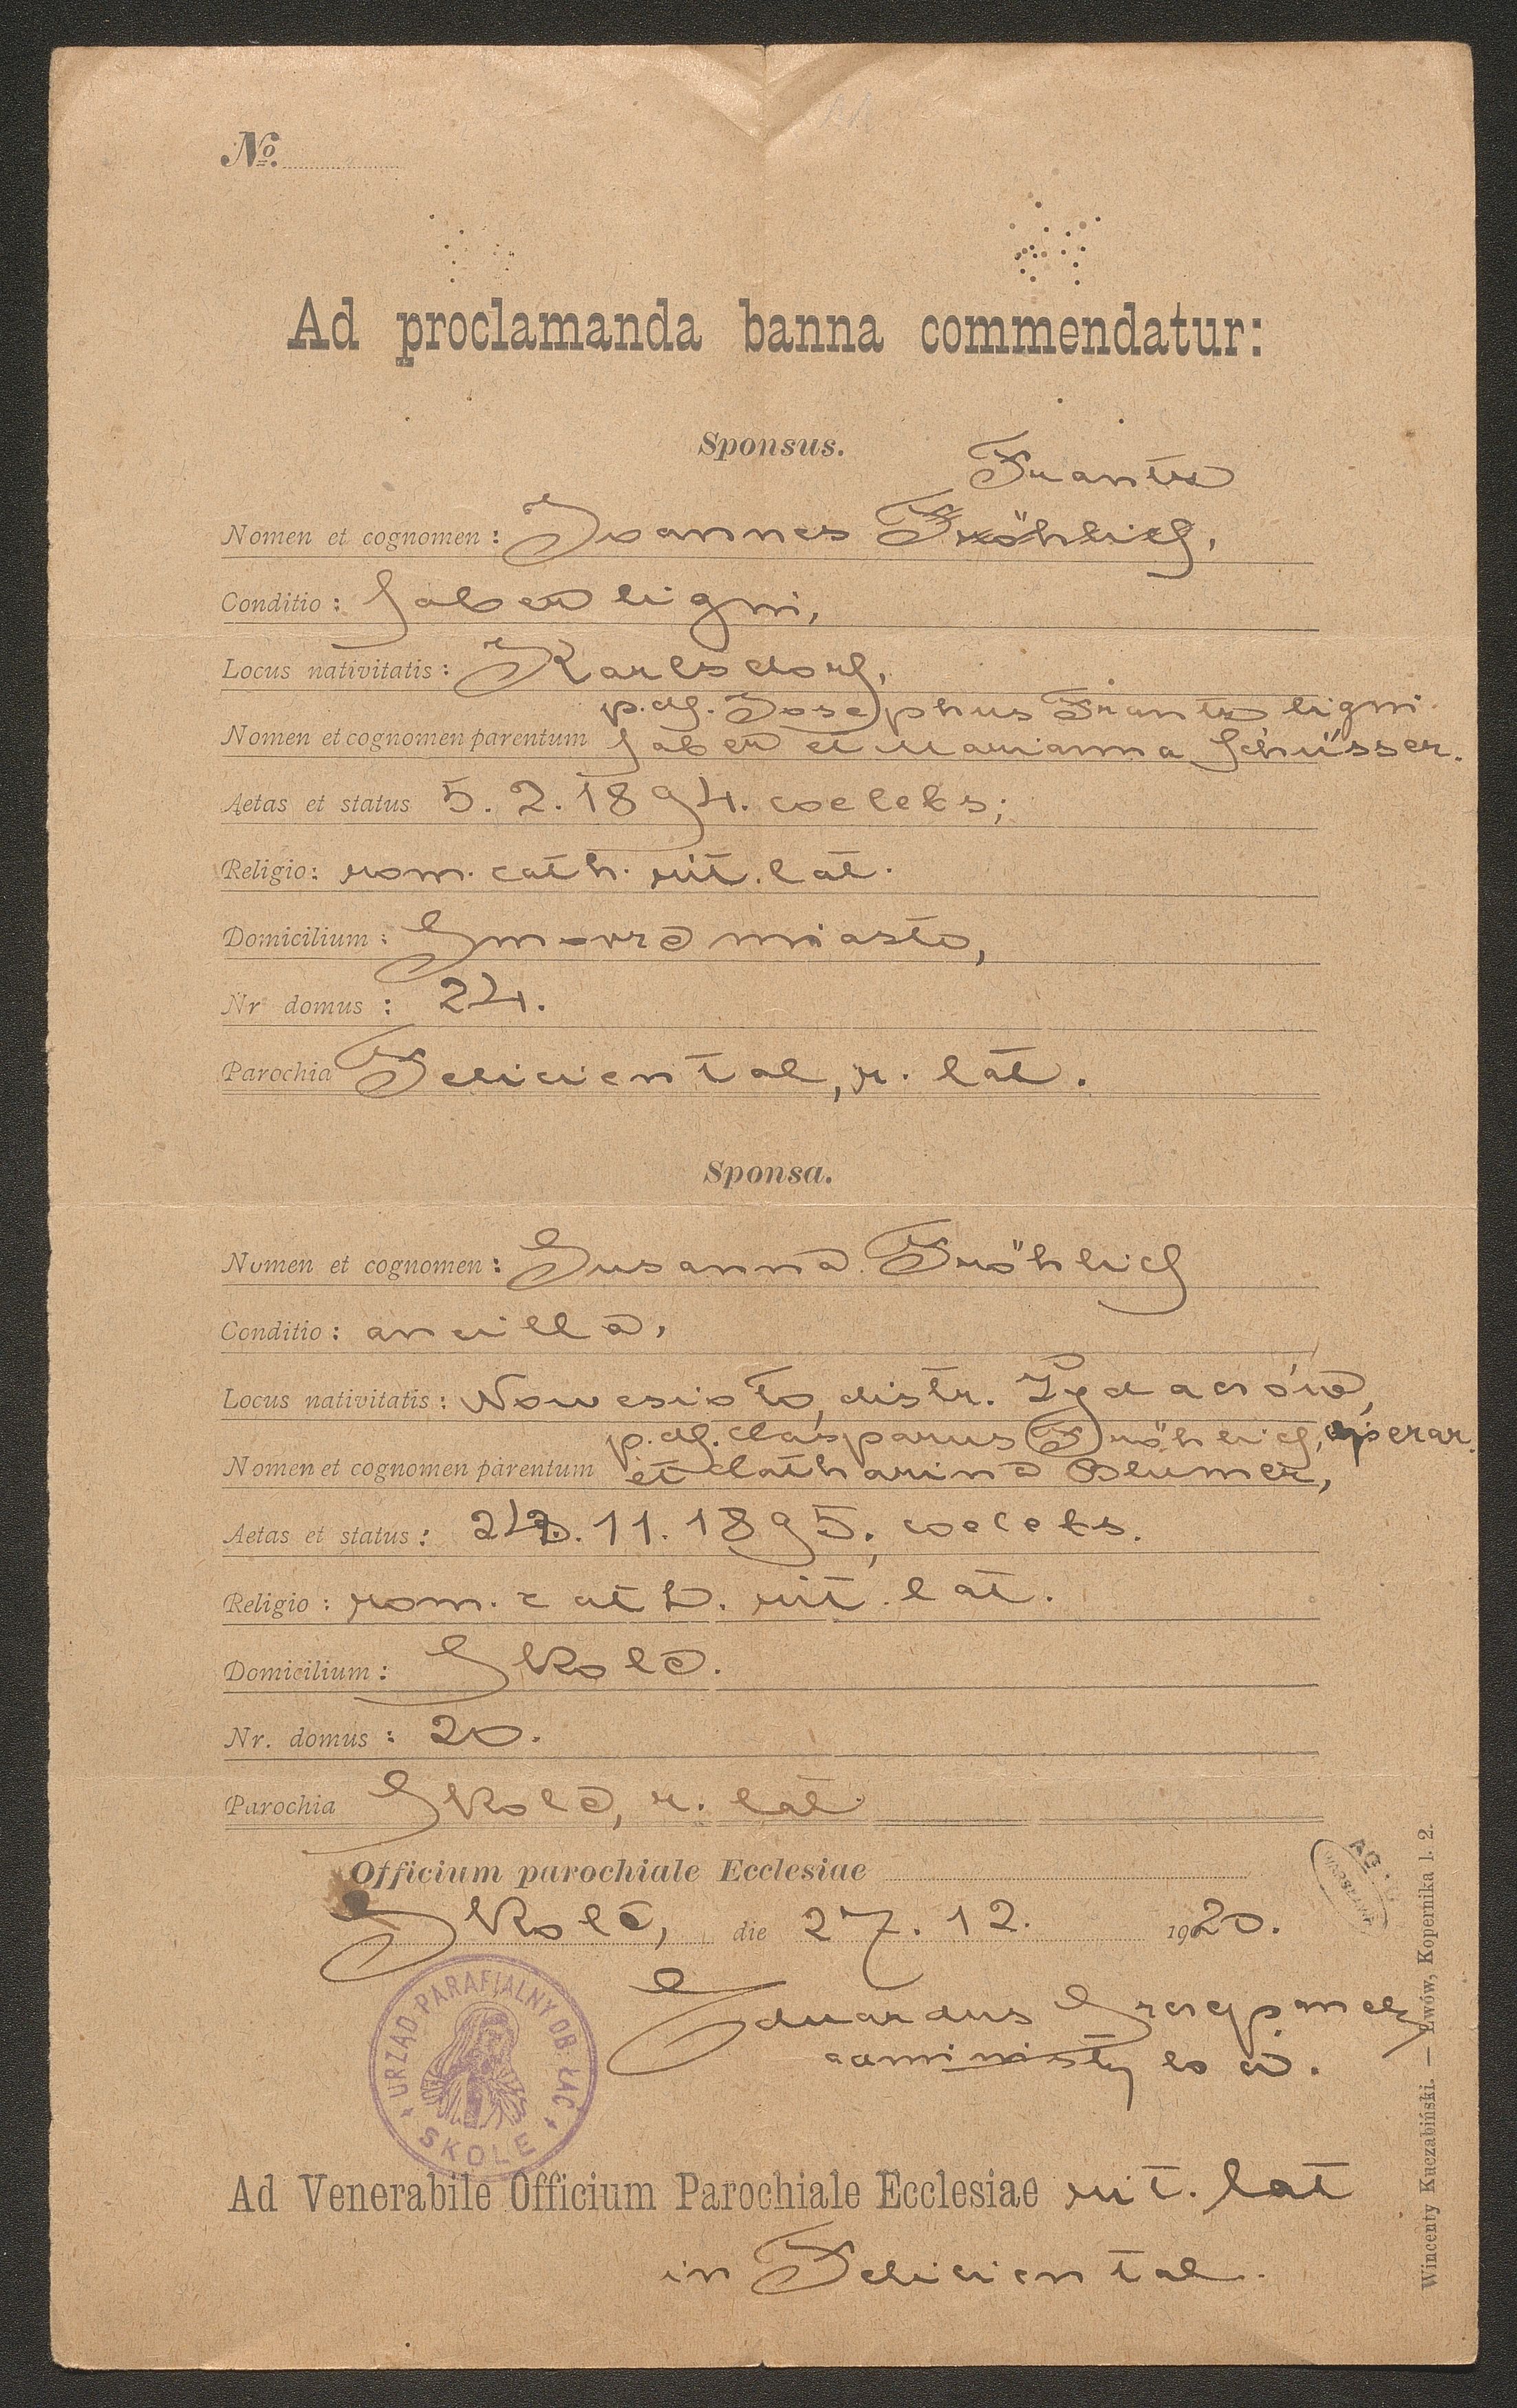 No.
Ad proclamanda banna commendatur:
Sponsus.
Frantz
Nomen et cognomen: Joannes Fröhlich,
Conditio: faber ligni,
Locus nativitatis: Karlsdorf,
p. df. Josephus Frantz ligni
Nomen et cognomen parentum faber et Marianna Schüsser.
Aetas et status 5. 2. 1894. coelebs;
Religio: rom. cath. rit. lat.
Domicilium: miasto,
Nr domus: 24.
Parochia Feliciental, r. lat.
Sponsa.
Nomen et cognomen: Susanna Fröhlich
Conditio: ancilla,
Locus nativitatis: Nowesioło, distr. Żydaczów,
p. df. Casparus Fröhlich, operar.
Nomen et cognomen parentum et Catharina Blumer,
Aetas et status: .11. 1895; coelebs.
Religio: rom. cath. rit. lat.
Domicilium: Skole.
Nr. domus: 20.
Parochia Skole, r. lat.
Officium parochiale Ecclesiae
Skole, die 27. 12. 1920.
Eduardus
URZĄD PARAFJALNY OB. ŁAC
SKOLE
Ad Venerabile Officium Parochiale Ecclesiae rit. lat
in Feliciental.
Wincenty Kuczabiński. — Lwów, Kopernika l. 2.